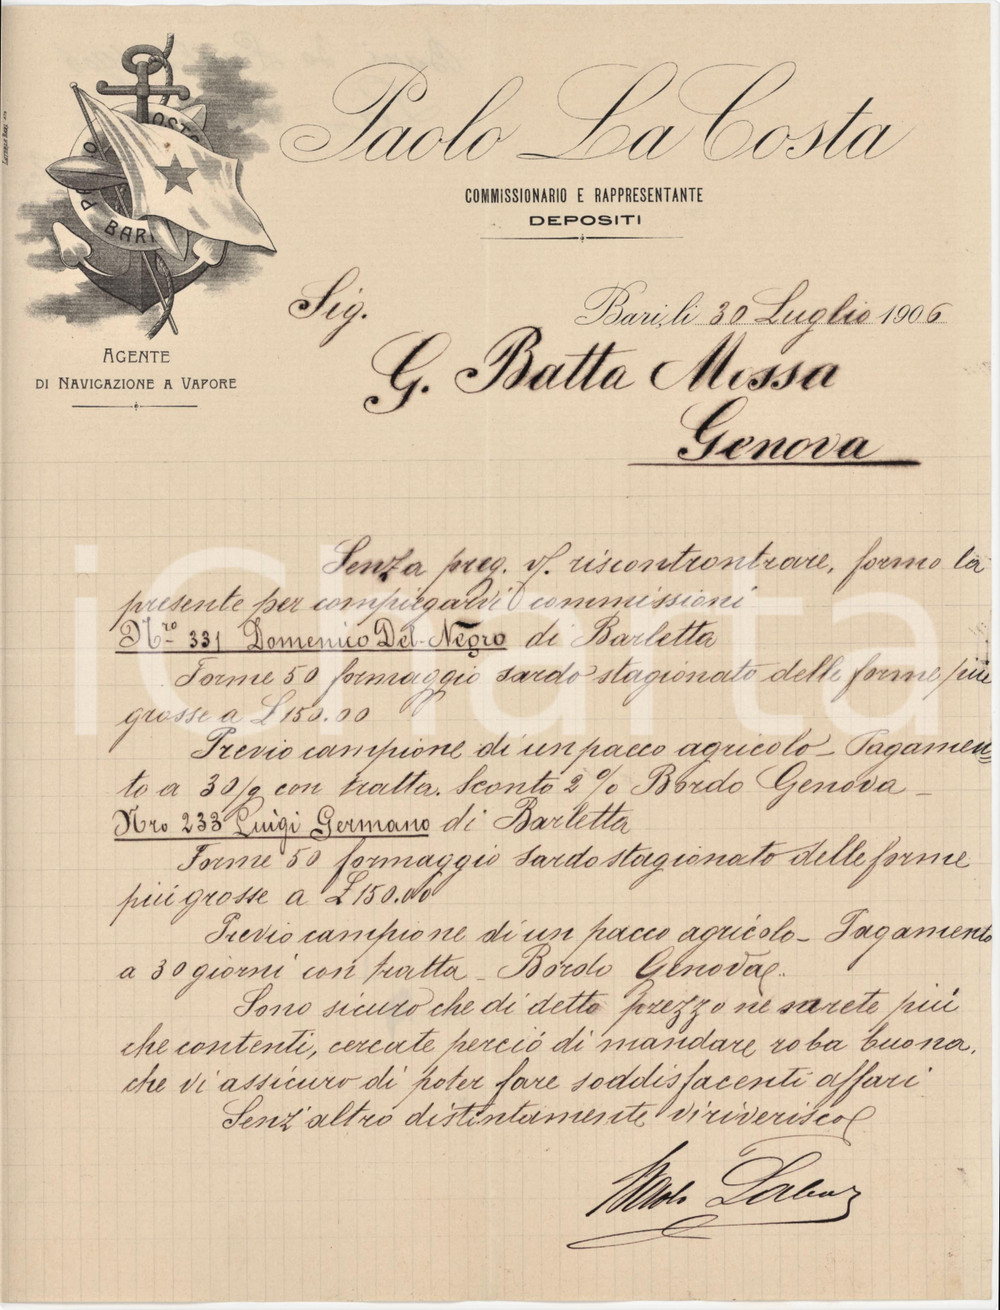 Paolo La Costa
COMMISSIONARIO E RAPPRESENTANTE
DEPOSITI
PAOLO COSTA
BARI
AGENTE
DI NAVIGAZIONE A VAPORE
Bari, li 30 Luglio 1906
Sig.
G. Batta Mossa
Genova
Senza preg. v/. riscontrontrare, formo la
presente per compiegarvi commissioni
Nro 331 Domenico Del-Negro di Barletta
Forme 50 formaggio sardo stagionato delle forme più
grosse a £ 150.00
Previo campione di un pacco agricolo - Pagamen=
to a 30/g con tratta. Sconto 2 % Bordo Genova -
Nro 233 Luigi Germano di Barletta
Forme 50 formaggio sardo stagionato delle forme
più grosse a £ 150.00
Previo campione di un pacco agricolo - Pagamento
a 30 giorni con tratta - Bordo Genova.
Sono sicuro che di detto prezzo ne sarete più
che contenti, cercate perció di mandare roba buona,
che vi assicuro di poter fare soddisfacenti affari
Senz'altro distintamente vi riverisco
Paolo
iCharta